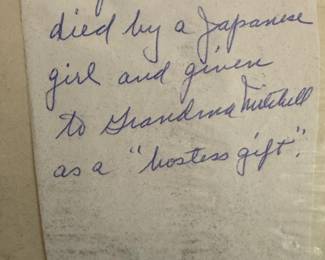 died by a Japanese
girl and given
to Grandma Mitchell
as a "hostess gift".